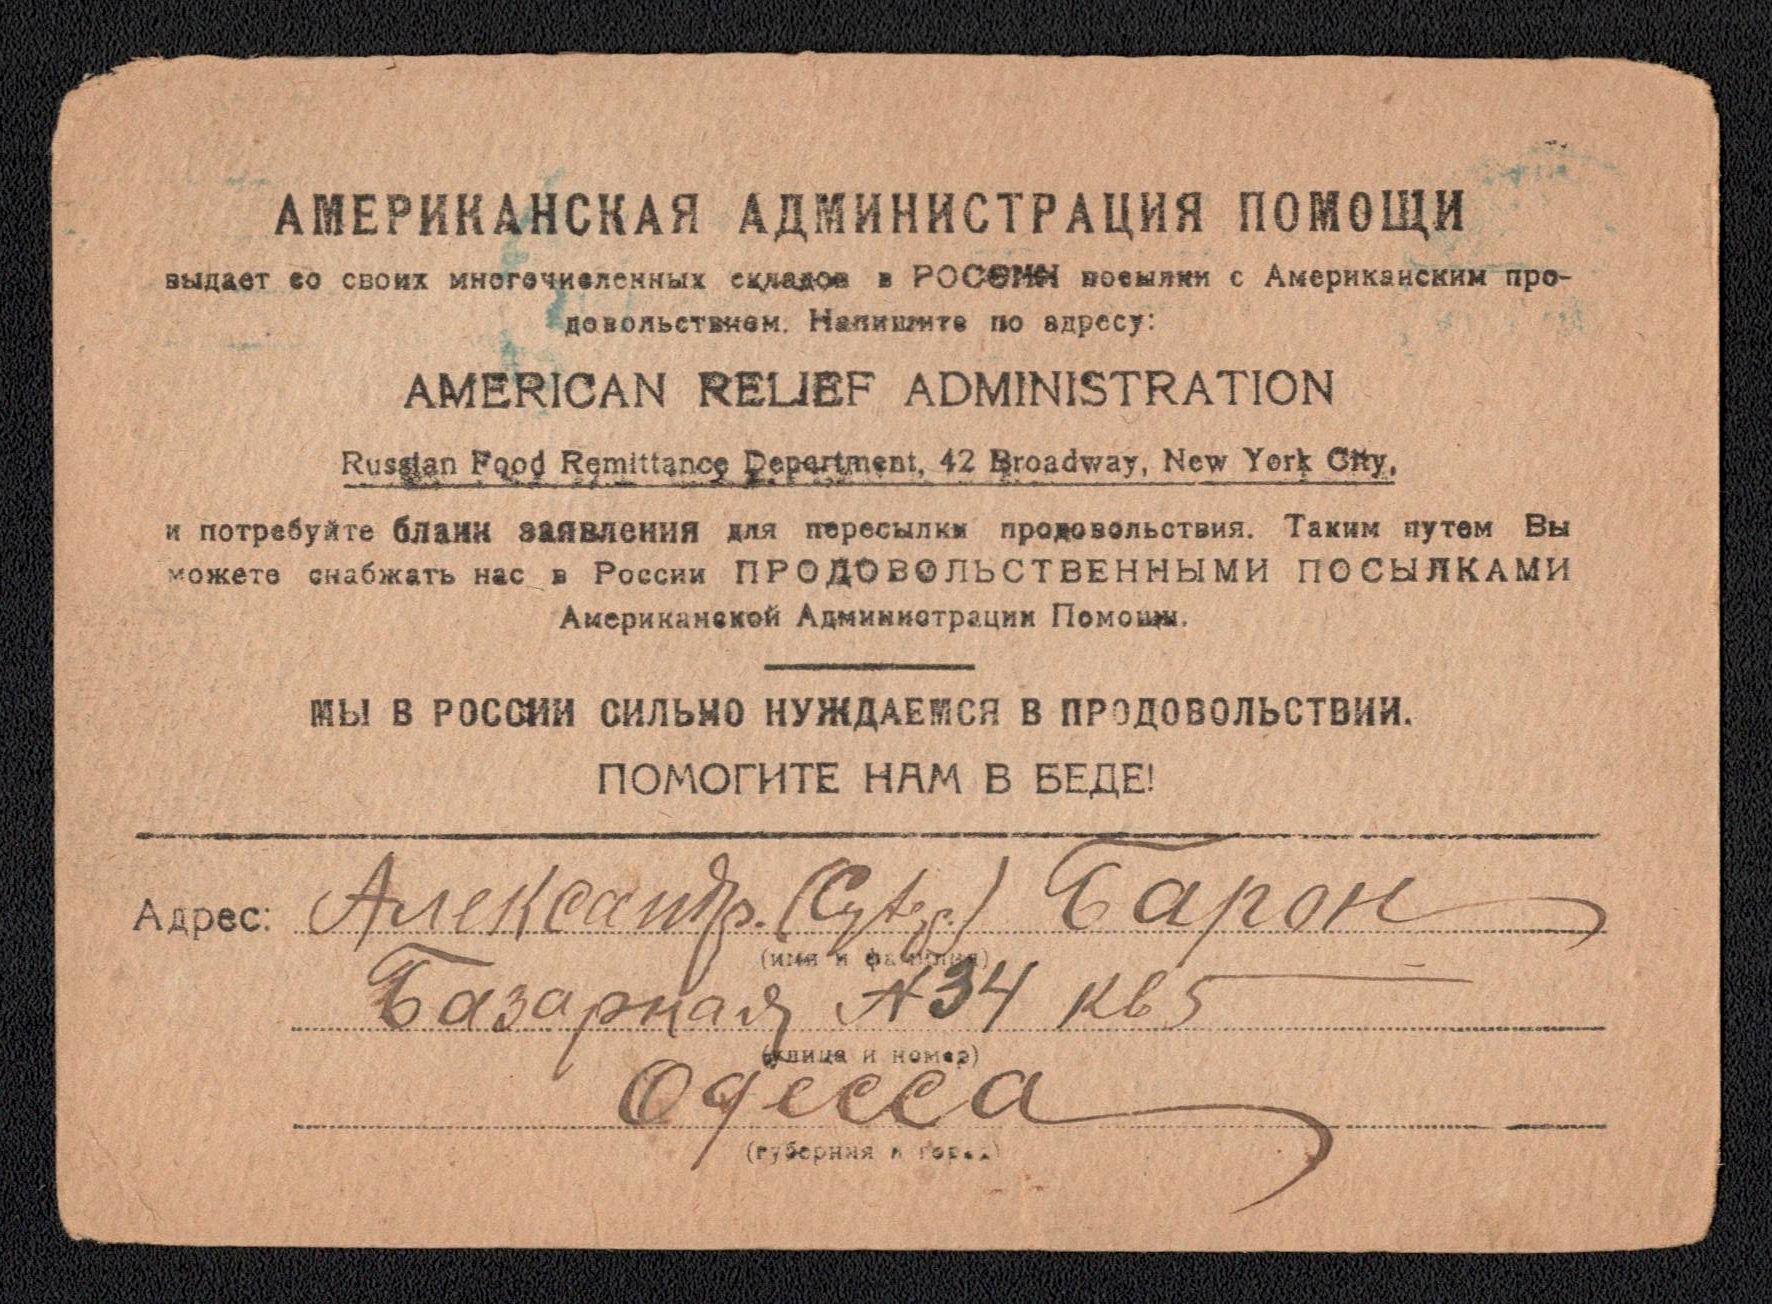 АМЕРИКАНСКАЯ АДМИНИСТРАЦИЯ ПОМОЩИ
выдает со своих многочисленных складов в РОССИИ посылки с Американским про-
довольствием. Напишите по адресу:
AMERICAN RELIEF ADMINISTRATION
Russian Food Remittance Department, 42 Broadway, New York City,
и потребуйте бланк заявления для пересылки продовольствия. Таким путем Вы
можете снабжать нас в России ПРОДОВОЛЬСТВЕННЫМИ ПОСЫЛКАМИ
Американской Администрации Помощи.
МЫ В РОССИИ СИЛЬНО НУЖДАЕМСЯ В ПРОДОВОЛЬСТВИИ.
ПОМОГИТЕ НАМ В БЕДЕ!
Адрес: Александр. Барон
(имя и фамилия)
Базарная № 34 кв 5
(улица и номер)
Одесса
(губерния и город)